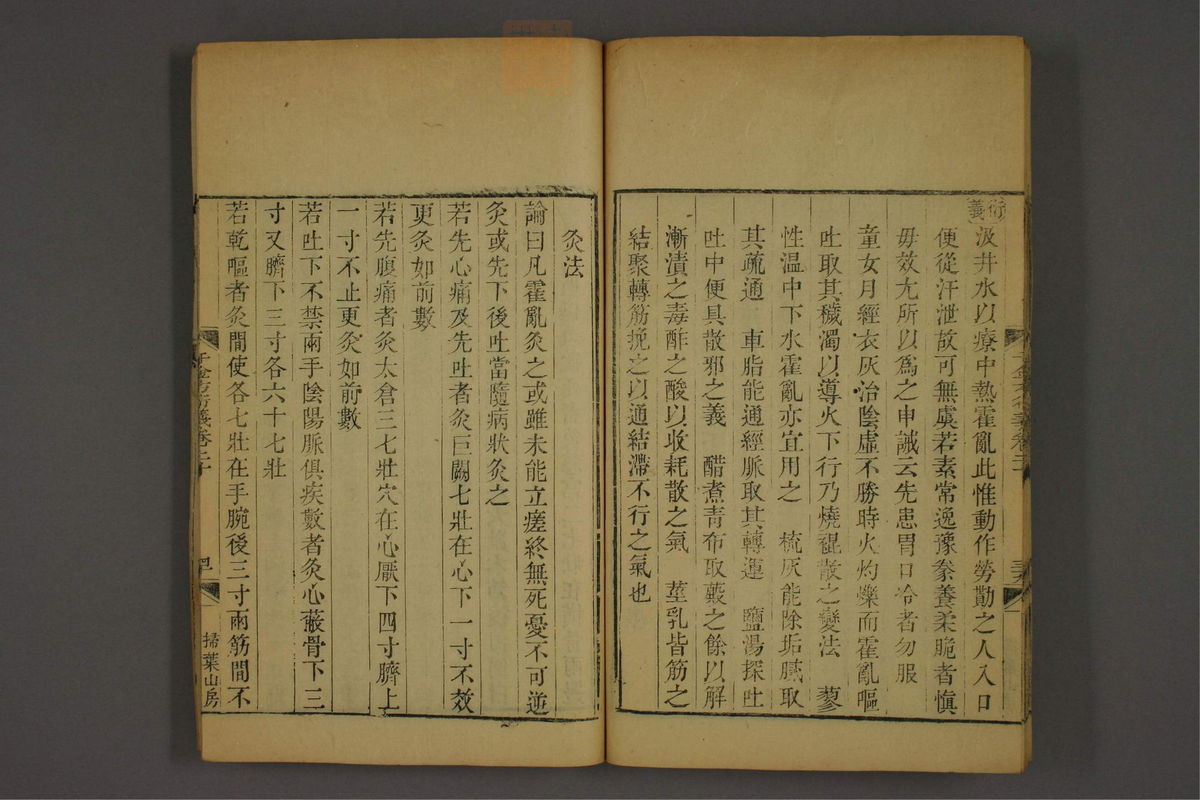 衍義
汲井水以療中熱霍亂此惟動作勞勩之人入口
便從汗泄故可無虞若素常逸豫豢養柔脆者慎
毋效尤所以爲之申誡云先患胃口冷者勿服
童女月經衣灰治陰虛不勝時火灼爍而霍亂嘔
吐取其穢濁以導火下行乃燒裩散之變法　蓼
性溫中下水霍亂亦宜用之　梳灰能除垢膩取
其疏通　車脂能通經脈取其轉運　鹽湯探吐
吐中便具散邪之義　醋煮青布取藍之餘以解
漸漬之毒酢之酸以收耗散之氣　莖乳皆筋之
結聚轉筋挽之以通結滯不行之氣也
灸法
論曰凡霍亂灸之或雖未能立瘥終無死憂不可逆
灸或先下後吐當隨病狀灸之
若先心痛及先吐者灸巨闕七壯在心下一寸不效
更灸如前數
若先腹痛者灸太倉三七壯穴在心厭下四寸臍上
一寸不止更灸如前數
若吐下不禁兩手陰陽脈俱疾數者灸心蔽骨下三
寸又臍下三寸各六十七壯
若乾嘔者灸間使各七壯在手腕後三寸兩筋間不
千金方衍義卷二十
掃葉山房